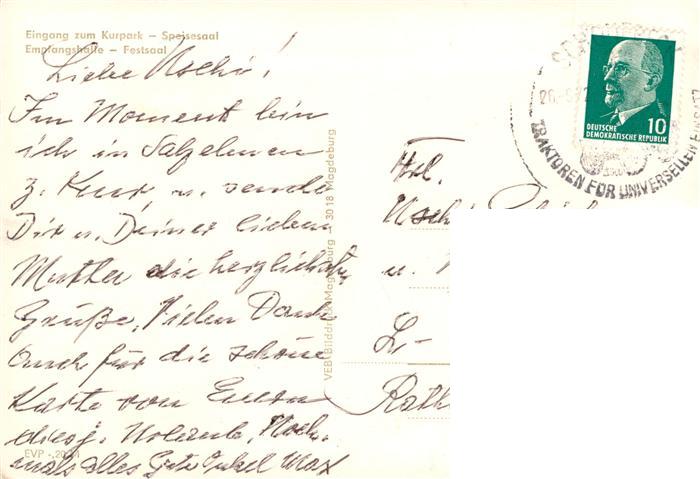 Eingang zum Kurpark – Speisesaal
Empfangshalle – Festsaal
Liebe Uschi!
Im Moment bin
ich in Salzelmen
z. Kur u. sende
Dir u. Deiner lieben
Mutter die herzlichsten
Grüße. Vielen Dank
auch für die schöne
Karte vom Euren
diesj. Urlaub. Noch-
mals alles Gute Onkel Max
EVP -,20
VEB Bilddruck Magdeburg 3018 Magdeburg
Frl.
Uschi
u.
DEUTSCHE
DEMOKRATISCHE REPUBLIK
10
TRAKTOREN FÜR UNIVERSELLEN EINSATZ